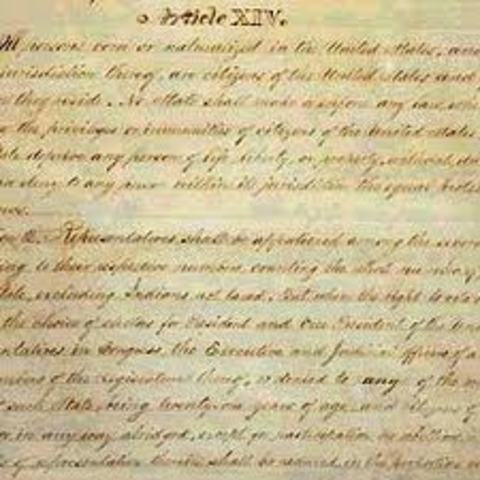 Article XIV.
All persons born or naturalized in the United States, and
jurisdiction thereof, are citizens of the United States and
they reside. No State shall make or enforce any law
the privileges or immunities of citizens of the United States
deprive any person of life, liberty, or property, without
deny to any person within its jurisdiction the equal
laws.
Representatives shall be apportioned among the several
to their respective numbers, counting the whole number of
State, excluding Indians not taxed. But when the right to
the choice of electors for President and Vice President of the
in Congress, the Executive and Judicial officers of a
members of the Legislature thereof, is denied to any of the
such State, being twenty-one years of age, and citizens of
or in any way abridged, except for participation in rebellion,
of representation therein shall be reduced in the proportion